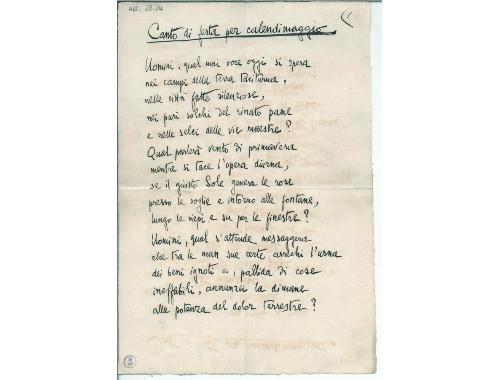 ARC. 28.24
Canto di festa per calendimaggio
Uomini, qual mai voce oggi si spera
nei campi della terra taciturna,
nelle città fatte silenziose,
nei puri solchi del rinato pane
e nelle selci delle vie maestre?
Qual parlerà vento di primavera
mentre si tace l'opera diurna,
se il giusto Sole genera le rose
presso le soglie e intorno alle fontane,
lungo le siepi e su per le finestre?
Uomini, qual s'attende messaggera
che tra le man sue certe arrechi l'urna
dei beni ignoti e, pallida di cose
ineffabili, annunzii la dimane
alla potenza del dolor terrestre?